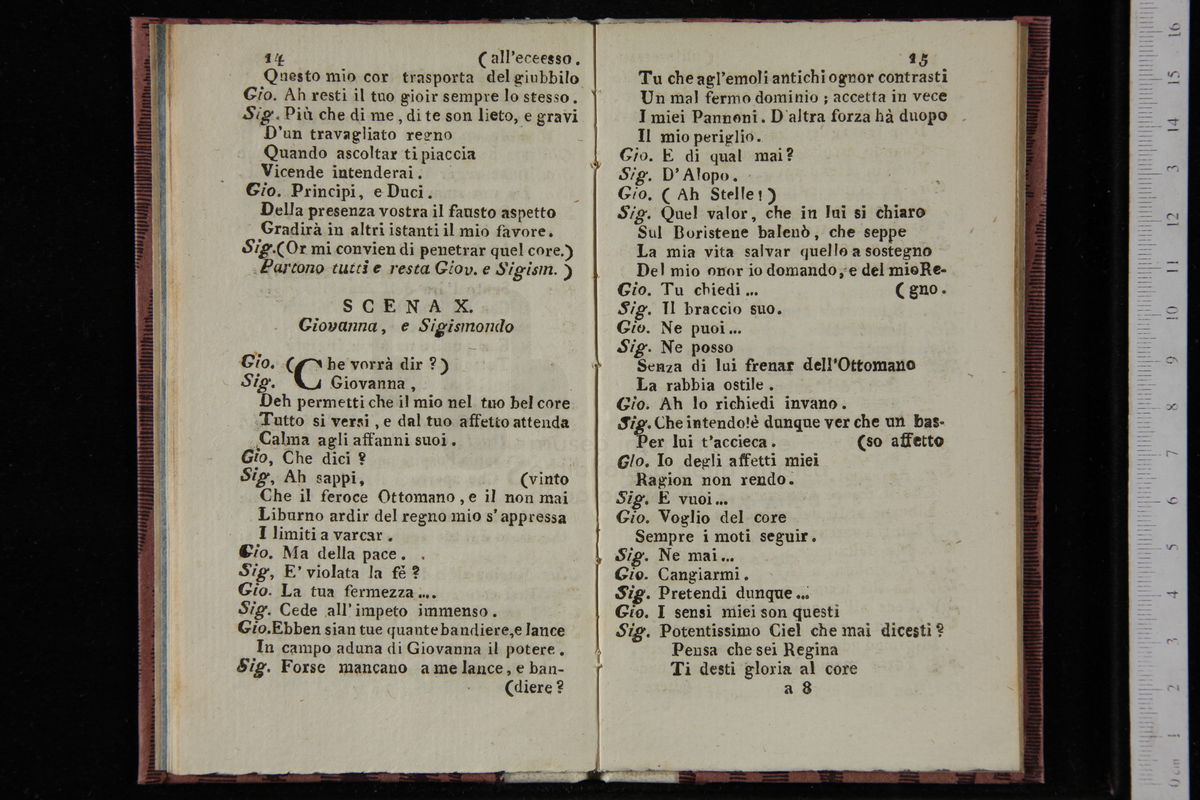 14 (all'eceesso.
Questo mio cor trasporta del giubbilo
Gio. Ah resti il tuo gioir sempre lo stesso.
Sig. Più che di me, di te son lieto, e gravi
D'un travagliato regno
Quando ascoltar ti piaccia
Vicende intenderai.
Gio. Principi, e Duci.
Della presenza vostra il fausto aspetto
Gradirà in altri istanti il mio favore.
Sig.(Or mi convien di penetrar quel core.)
Partono tutti e resta Giov. e Sigism. )
SCENA X.
Giovanna, e Sigismondo
Gio. (Che vorrà dir ?)
Sig. Giovanna,
Deh permetti che il mio nel tuo bel core
Tutto si versi, e dal tuo affetto attenda
Calma agli affanni suoi.
Gio, Che dici ?
Sig, Ah sappi, (vinto
Che il feroce Ottomano, e il non mai
Liburno ardir del regno mio s'appressa
I limiti a varcar.
Gio. Ma della pace. .
Sig, E' violata la fè ?
Gio. La tua fermezza....
Sig. Cede all'impeto immenso.
Gio.Ebben sian tue quante bandiere,e lance
In campo aduna di Giovanna il potere.
Sig. Forse mancano a me lance, e ban-
(diere ?
15
Tu che agl'emoli antichi ognor contrasti
Un mal fermo dominio ; accetta in vece
I miei Pannoni. D'altra forza hà duopo
Il mio periglio.
Gio. E di qual mai?
Sig. D'Alopo.
Gio. ( Ah Stelle! )
Sig. Quel valor, che in lui si chiaro
Sul Boristene balenò, che seppe
La mia vita salvar quello a sostegno
Del mio onor io domando, e del mio Re-
Gio. Tu chiedi... (gno.
Sig. Il braccio suo.
Gio. Ne puoi...
Sig. Ne posso
Senza di lui frenar dell'Ottomano
La rabbia ostile.
Gio. Ah lo richiedi invano.
Sig. Che intendo!è dunque ver che un bas-
Per lui t'accieca. (so affetto
Gio. Io degli affetti miei
Ragion non rendo.
Sig. E vuoi...
Gio. Voglio del core
Sempre i moti seguir.
Sig. Ne mai...
Gio. Cangiarmi.
Sig. Pretendi dunque...
Gio. I sensi miei son questi
Sig. Potentissimo Ciel che mai dicesti ?
Pensa che sei Regina
Ti desti gloria al core
a 8
16
15
14
13
12
11
10
9
8
7
6
5
4
3
2
1
0 cm